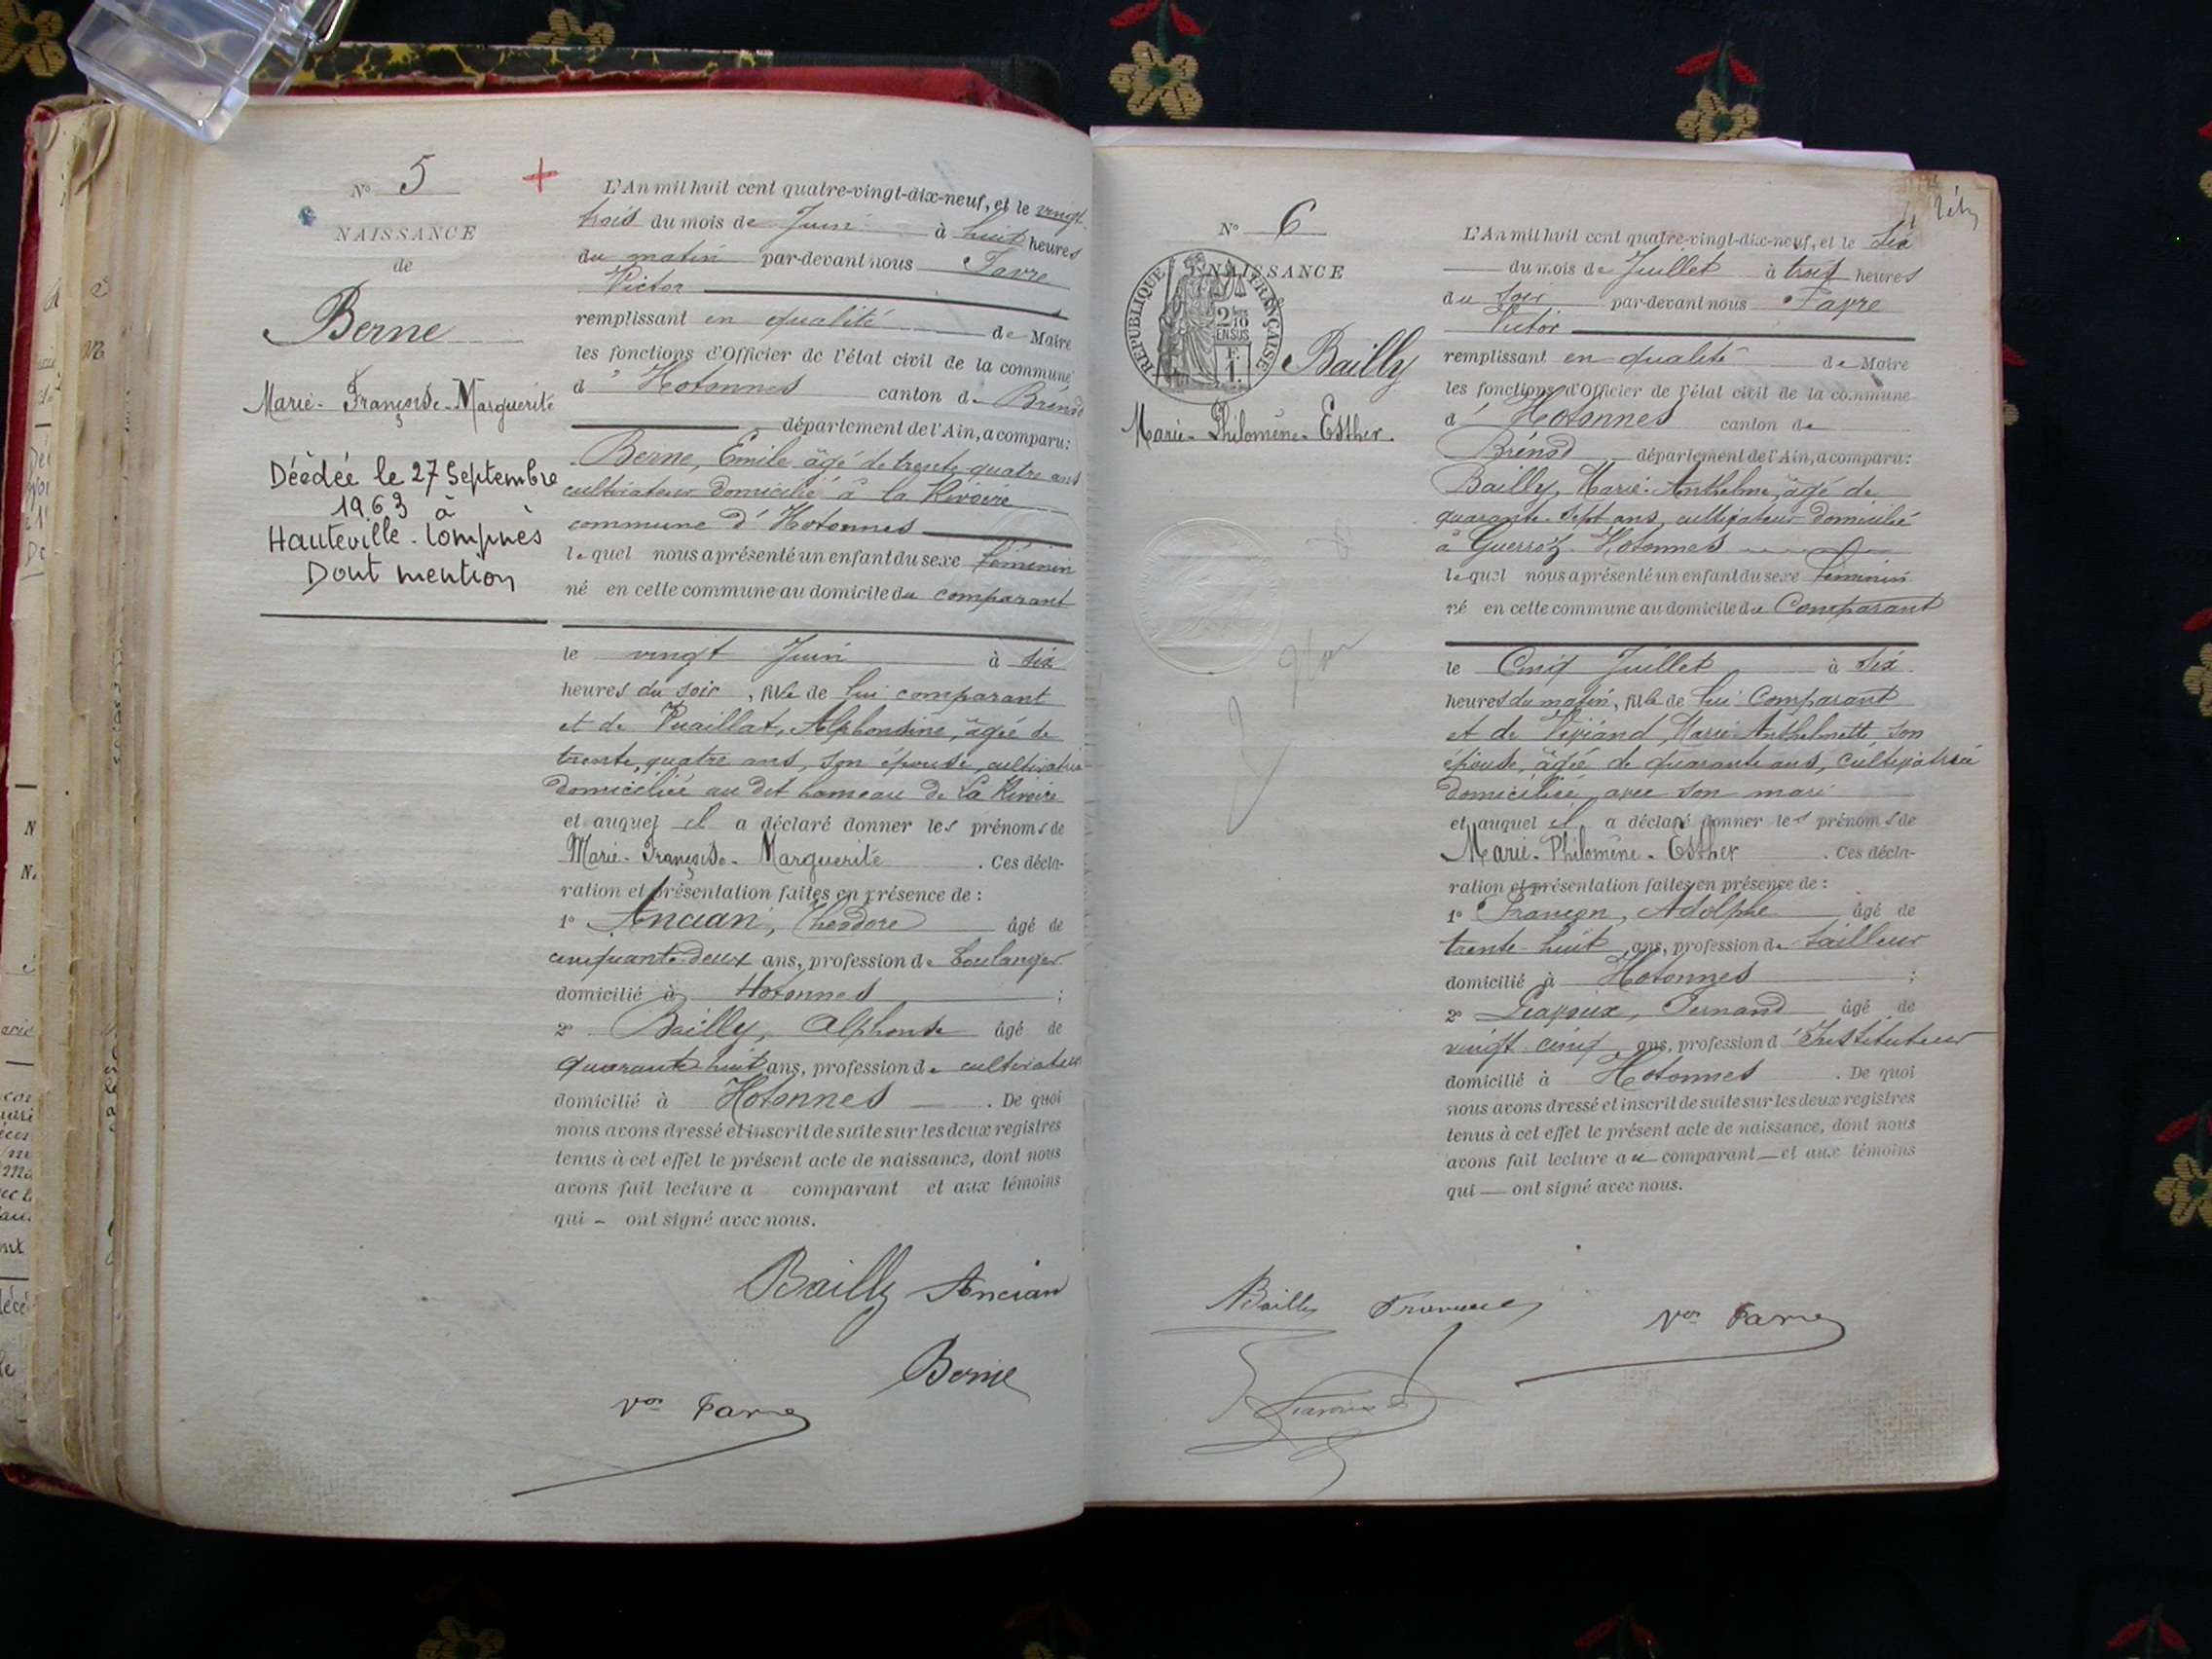 N° 5
NAISSANCE
de
Berne
Marie-Françoise-Marguerite
Décédée le 27 Septembre
1963 à
Hauteville-Lompnès
Dont mention
L'An mil huit cent quatre-vingt-dix-neuf, et le vingt-
trois du mois de Juin à huit heures
du matin par-devant nous Favre
Victor
remplissant en qualité de Maire
les fonctions d'Officier de l'état civil de la commune
d' Hotonnes canton de Brénod
département de l'Ain, a comparu:
Berne, Emile âgé de trente-quatre ans
cultivateur domicilié à la Rivoire
commune d'Hotonnes
lequel nous a présenté un enfant du sexe féminin
né en cette commune au domicile du comparant
le vingt Juin à six
heures du soir, fille de lui comparant
et de Vuaillat, Alphonsine, âgée de
trente quatre ans, son épouse, cultivatrice
domiciliée au dit hameau de La Rivoire
et auquel il a déclaré donner les prénoms de
Marie-Françoise-Marguerite. Ces décla-
ration et présentation faites en présence de :
1° Ancian, Théodore âgé de
cinquante-deux ans, profession de boulanger
domicilié à Hotonnes ;
2° Bailly, Alphonse âgé de
quarante huit ans, profession de cultivateur
domicilié à Hotonnes. De quoi
nous avons dressé et inscrit de suite sur les deux registres
tenus à cet effet le présent acte de naissance, dont nous
avons fait lecture a comparant et aux témoins
qui ont signé avec nous.
Bailly Ancian
Berne
Vor Favre
N° 6
NAISSANCE
REPUBLIQUE FRANÇAISE
2/10
EN SUS
F.
1.
Bailly
Marie-Philomène-Esther.
L'An mil huit cent quatre-vingt-dix-neuf, et le six
du mois de Juillet à trois heures
du soir par-devant nous Favre
Victor
remplissant en qualité de Maire
les fonctions d'Officier de l'état civil de la commune
d' Hotonnes canton de
Brénod département de l'Ain, a comparu:
Bailly, Marie-Anthelme, âgé de
quarante-sept ans, cultivateur domicilié
à Hotonnes
lequel nous a présenté un enfant du sexe féminin
né en cette commune au domicile du Comparant
le Cinq Juillet à six
heures du matin, fille de lui Comparant
et de Viviand, Marie Anthelmette son
épouse, âgée de quarante ans, cultivatrice
domiciliée avec son mari
et auquel il a déclaré donner les prénoms de
Marie-Philomène-Esther. Ces décla-
ration et présentation faites en présence de :
1° Françon, Adolphe âgé de
trente-huit ans, profession de tailleur
domicilié à Hotonnes ;
2° Fernand âgé de
vingt-cinq ans, profession d'Instituteur
domicilié à Hotonnes. De quoi
nous avons dressé et inscrit de suite sur les deux registres
tenus à cet effet le présent acte de naissance, dont nous
avons fait lecture au comparant et aux témoins
qui ont signé avec nous.
ABailly
Vor Favre